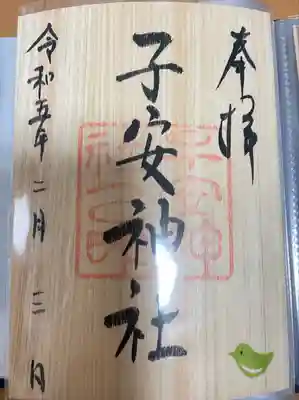 奉拝
子安神社
令和五年二月三日